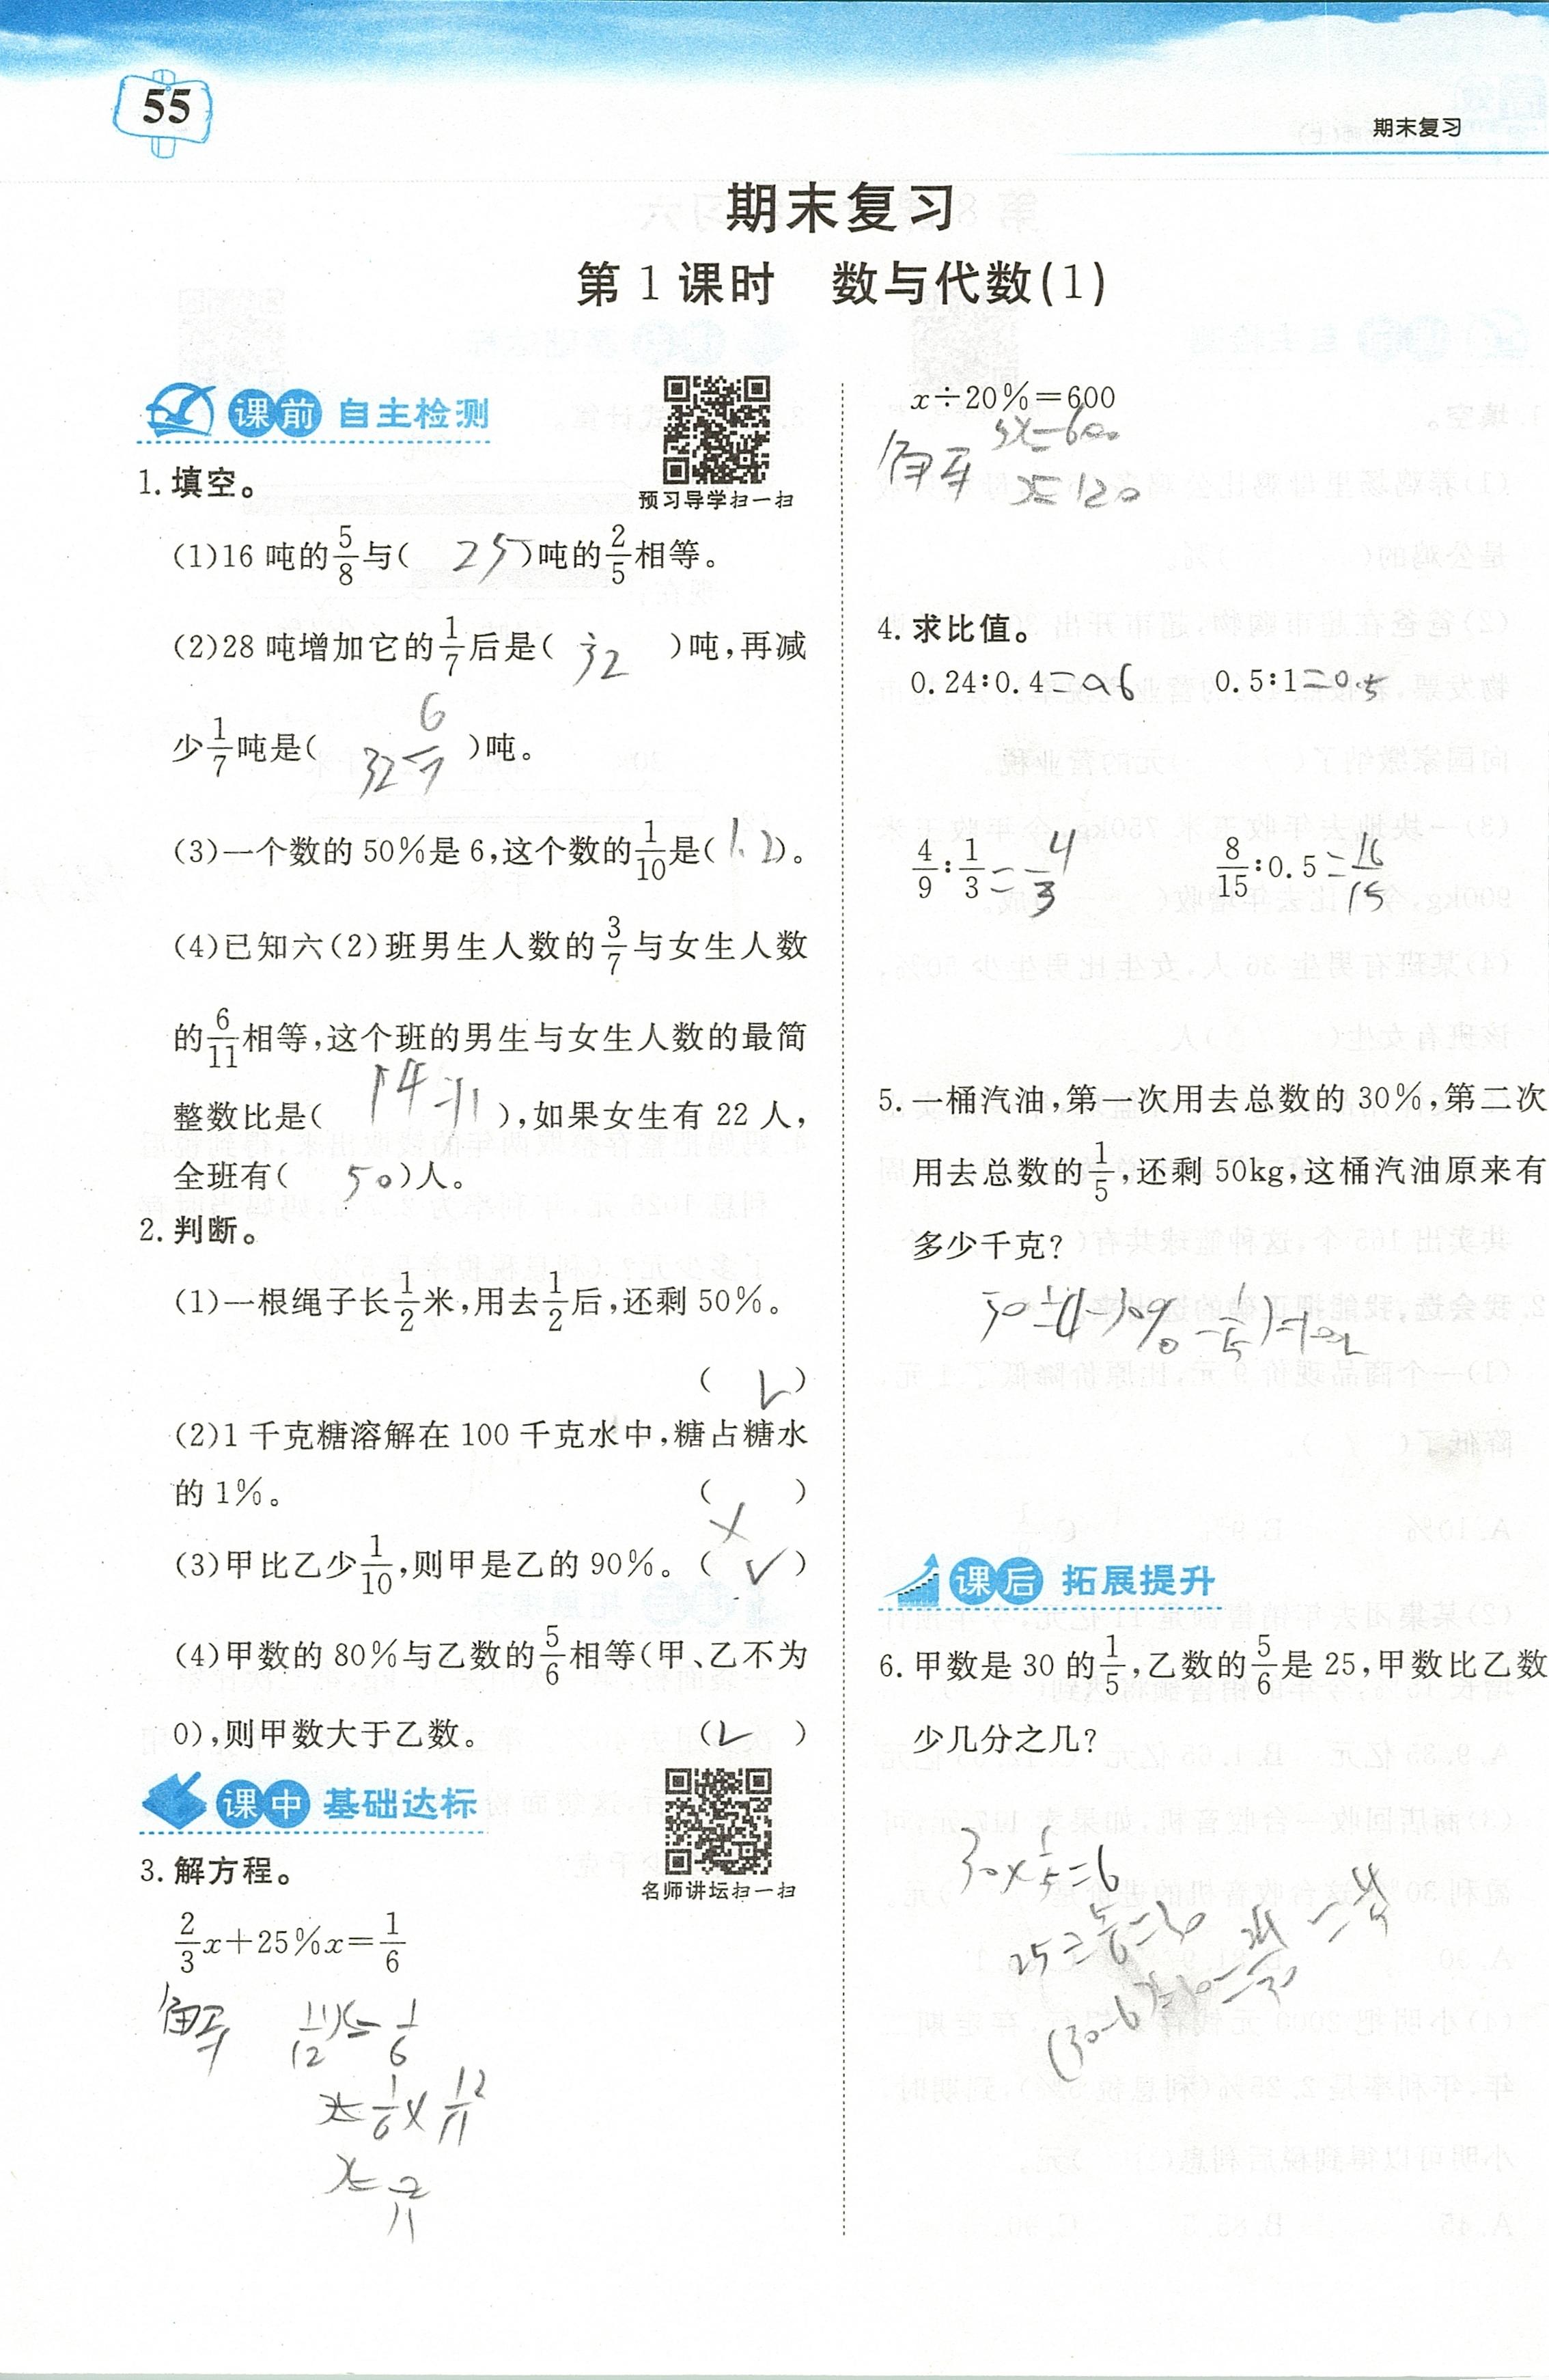 55
期末复习
期末复习
第1课时 数与代数(1)
课前 自主检测
预习导学扫一扫
1. 填空。
(1)16 吨的5/8与( 25 )吨的2/5相等。
(2)28 吨增加它的1/7后是( 32 )吨,再减
少1/7吨是( 32 6/7 )吨。
(3)一个数的 50%是 6,这个数的1/10是( 1.2 )。
(4)已知六(2)班男生人数的3/7与女生人数
的6/11相等,这个班的男生与女生人数的最简
整数比是( 14:11 ),如果女生有 22 人,
全班有( 50 )人。
2. 判断。
(1)一根绳子长1/2米,用去1/2后,还剩 50%。
( √ )
(2)1 千克糖溶解在 100 千克水中,糖占糖水
的 1%。 ( × )
(3)甲比乙少1/10,则甲是乙的 90%。( √ )
(4)甲数的 80%与乙数的5/6相等(甲、乙不为
0),则甲数大于乙数。 ( √ )
课中 基础达标
名师讲坛扫一扫
3. 解方程。
2/3x+25%x=1/6
解 11/12x=1/6
x=1/6×12/11
x=2/11
x÷20%=600
解 5x=600
x=120
4. 求比值。
0.24:0.4=0.6 0.5:1=0.5
4/9:1/3=4/3 8/15:0.5=16/15
5. 一桶汽油,第一次用去总数的 30%,第二次
用去总数的1/5,还剩 50kg,这桶汽油原来有
多少千克?
50÷(1-30%-1/5)=100
课后 拓展提升
6. 甲数是 30 的1/5,乙数的5/6是 25,甲数比乙数
少几分之几?
30×1/5=6
25÷5/6=30
(30-6)÷30=24/30=4/5